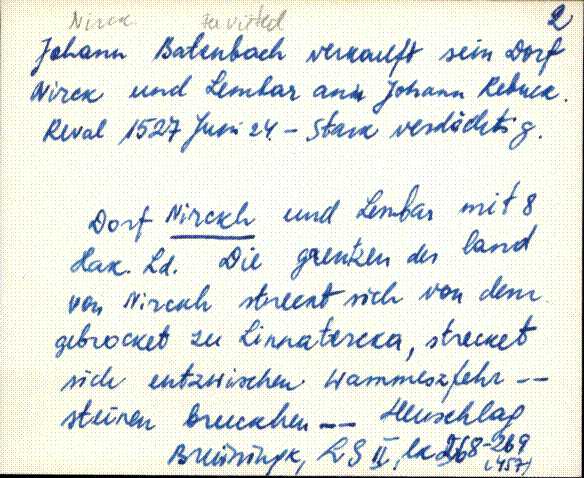 Nirck 2
Johann Batenbach verkauft sein Dorf
Nirck und Lembar ann Johann Rebuck.
Reval 1527 Juni 24 – Stark verdächtig.
Dorf Nirckh und Lembar mit 8
Hak. Ld. Die grentzen des land
von Nirckh streckt sich von dem
gebrocket zu Linnatercka, strecket
sich entzwischen Wammeszfehr --
steinen bruckhen -- Heuschlag
Bruiningk, LG II, lk 268-269
(457)